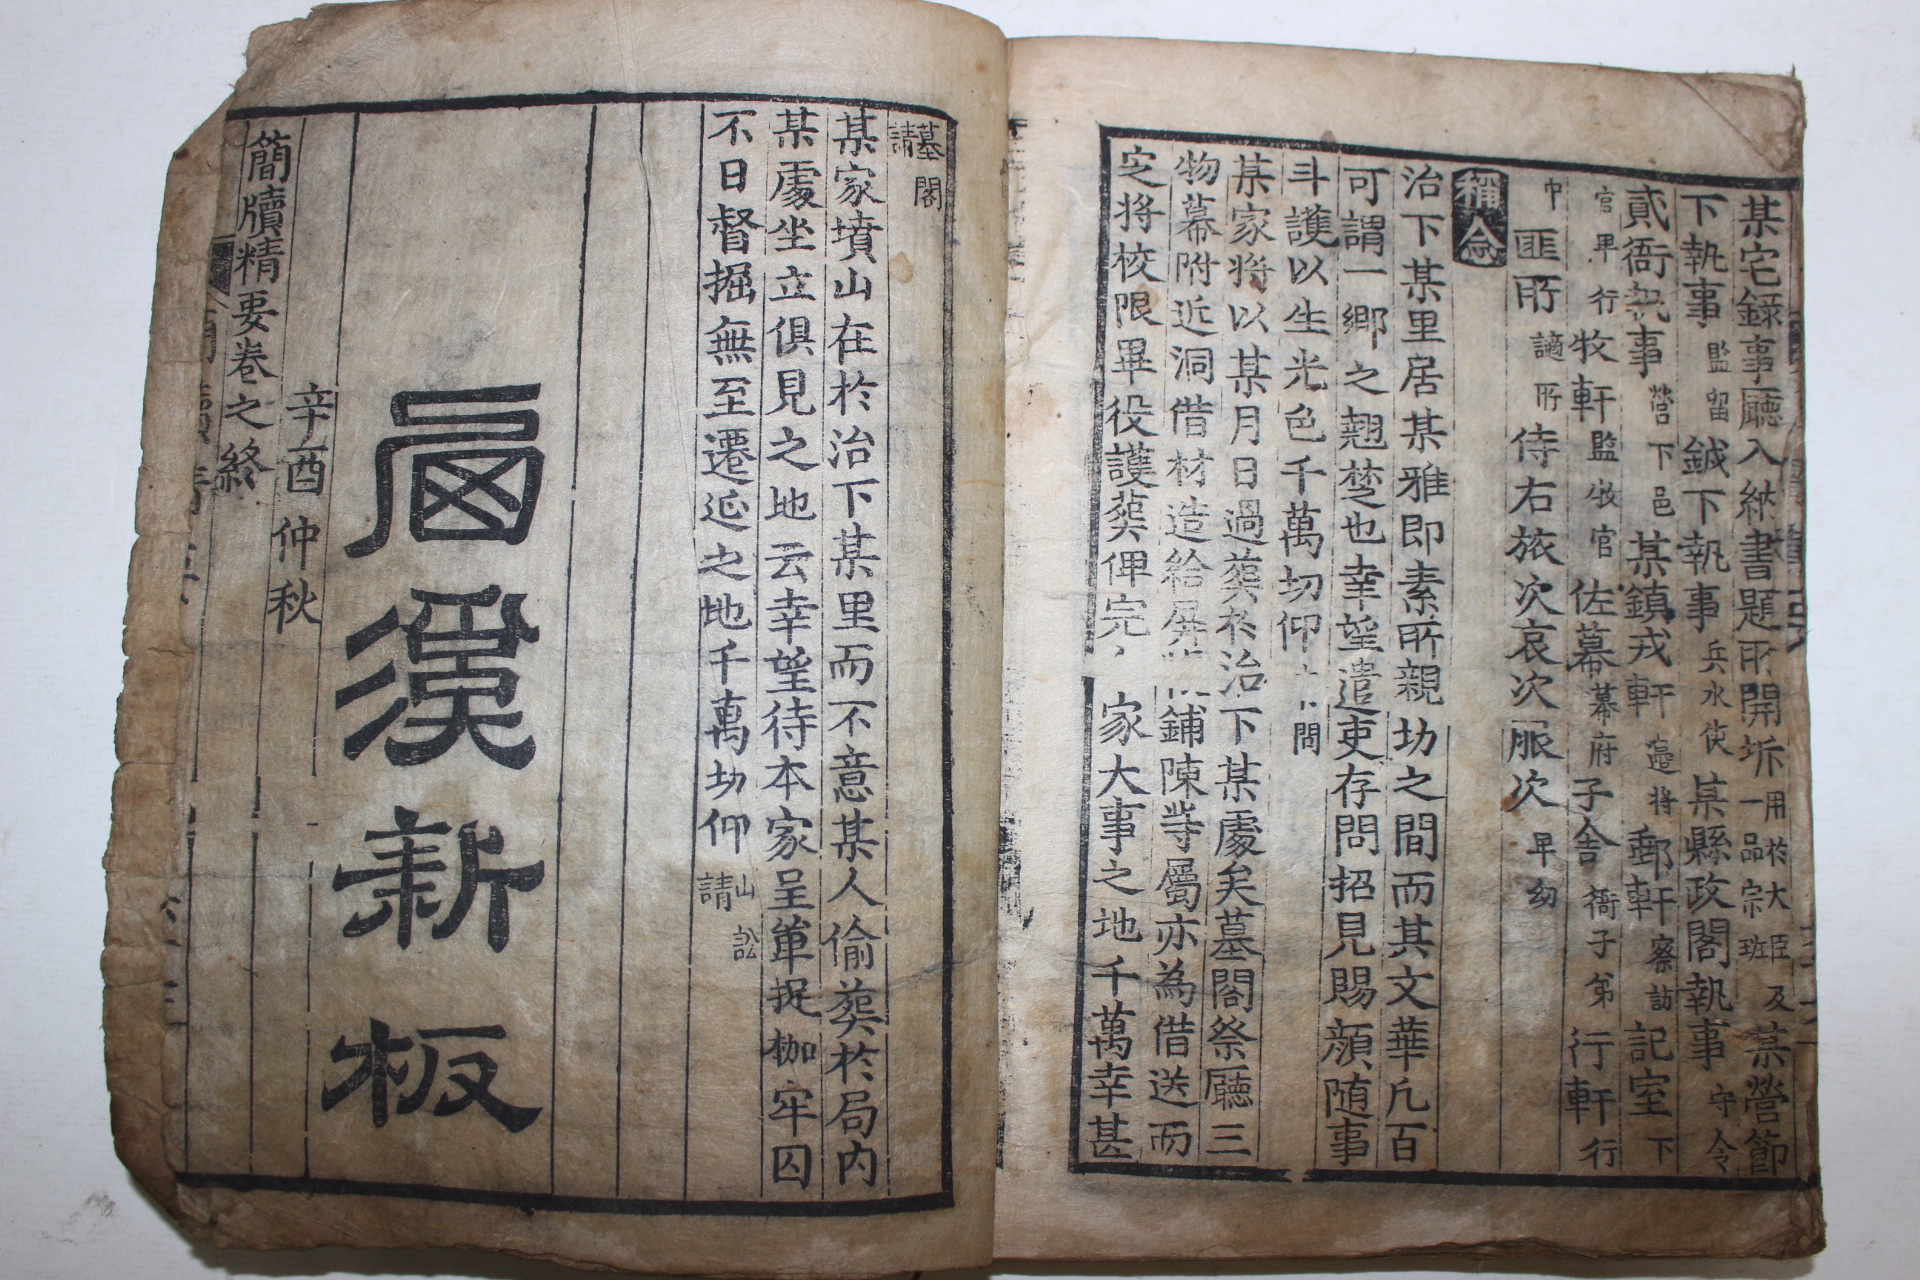 某宅録事廳入納書題所開坼 一品宗班 用於大臣及 某營節
下執事 監留 鉞下執事 兵水使 某縣政閣執事 守令
貳衙執事 營下邑 某鎮戎軒 邊將 郵軒 察訪 記室 下
官卑行 牧軒 監牧官 佐幕 幕府 子舍 衙子弟 行軒 行
中 匪所 謫所 侍右旅次哀次服次 卑幼
稱念
治下某里居某雅即素所親切之間而其文華凡百
可謂一鄉之翹楚也幸望遣吏存問招見賜顔隨事
斗護以生光色千萬切仰 問
某家將以某月日過葬於治下某處矣墓閣祭廳三
物幕附近洞借材造給屏 鋪陳等屬亦為借送而
定將校限畢役護葬俾完 家大事之地千萬幸甚
墓閣請
某家墳山在於治下某里而不意某人偷葬於局内
某處坐立俱見之地云幸望待本家呈單捉枷牢囚
不日督掘無至遷延之地千萬切仰 山訟請
新板
辛酉仲秋
簡牘精要卷之終